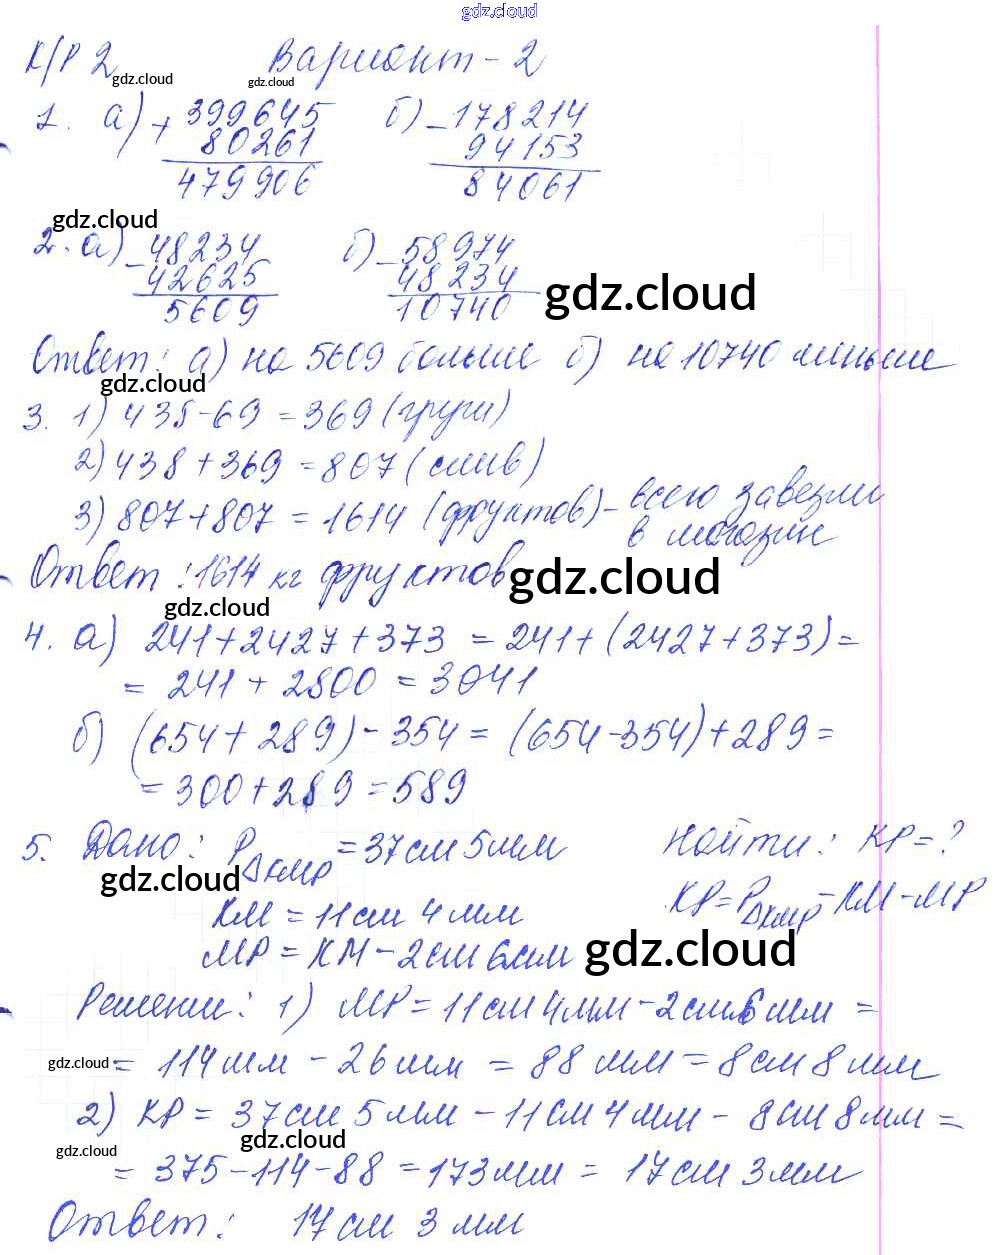 gdz.cloud
К/Р 2 gdz.cloud Вариант - 2 gdz.cloud
1. а) + 399645 б) - 178214
80261 94153
479906 84061
gdz.cloud
2. а) - 48234 б) - 58974
42625 48234 gdz.cloud
5609 10740
Ответ: а) на 5609 больше б) на 10740 меньше
gdz.cloud
3. 1) 438-69 = 369 (груши)
2) 438 + 369 = 807 (слив)
3) 807+807 = 1614 (фруктов) - всего завезли
в магазин
Ответ: 1614 кг фруктов gdz.cloud
gdz.cloud
4. а) 241+2427+373 = 241+(2427+373) =
= 241 + 2800 = 3041
б) (654+289) - 354 = (654-354)+289 =
= 300+289 = 589
5. Дано: P△KMP = 37см 5мм Найти: KP = ?
gdz.cloud
KM = 11см 4мм KP = P△KMP - KM - MP
MP = KM - 2см 6мм gdz.cloud
Решение: 1) MP = 11см 4мм - 2см 6мм =
gdz.cloud = 114мм - 26мм = 88мм = 8см 8мм
2) KP = 37см 5мм - 11см 4мм - 8см 8мм =
gdz.cloud gdz.cloud
= 375-114-88 = 173мм = 17см 3мм
Ответ: 17см 3мм